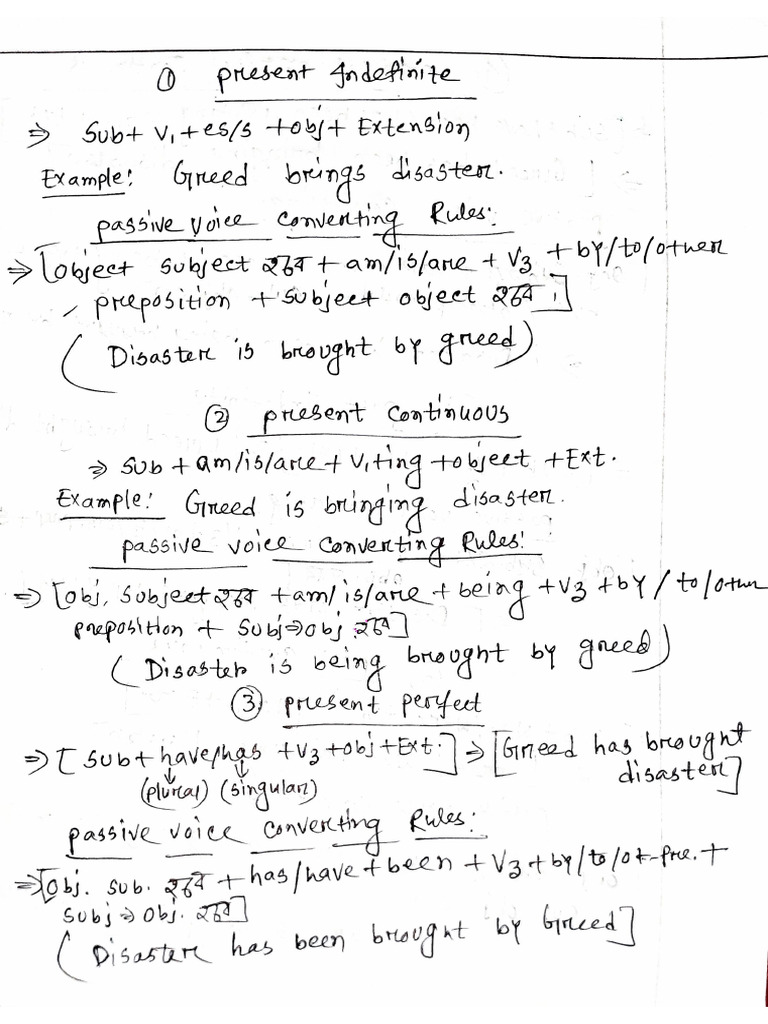 ① Present Indefinite
⇒ Sub + V₁ + es/s + obj + Extension
Example: Greed brings disaster.
Passive Voice Converting Rules:
⇒ [object subject হবে + am/is/are + V3 + by/to/other
preposition + subject object হবে।]
(Disaster is brought by greed)
② Present Continuous
⇒ Sub + am/is/are + V₁+ing + object + Ext.
Example: Greed is bringing disaster.
Passive voice Converting Rules:
⇒ [obj. subject হবে + am/is/are + being + V3 + by/to/other
preposition + Subj⇒obj হবে]
(Disaster is being brought by greed)
③ Present perfect
⇒ [Sub + have/has + V3 + obj + Ext.] ⇒ [Greed has brought
disaster]
(plural) (singular)
Passive voice Converting Rules:
⇒ [Obj. sub. হবে + has/have + been + V3 + by/to/ot-pre. +
Subj ⇒ obj. হবে]
(Disaster has been brought by Greed]